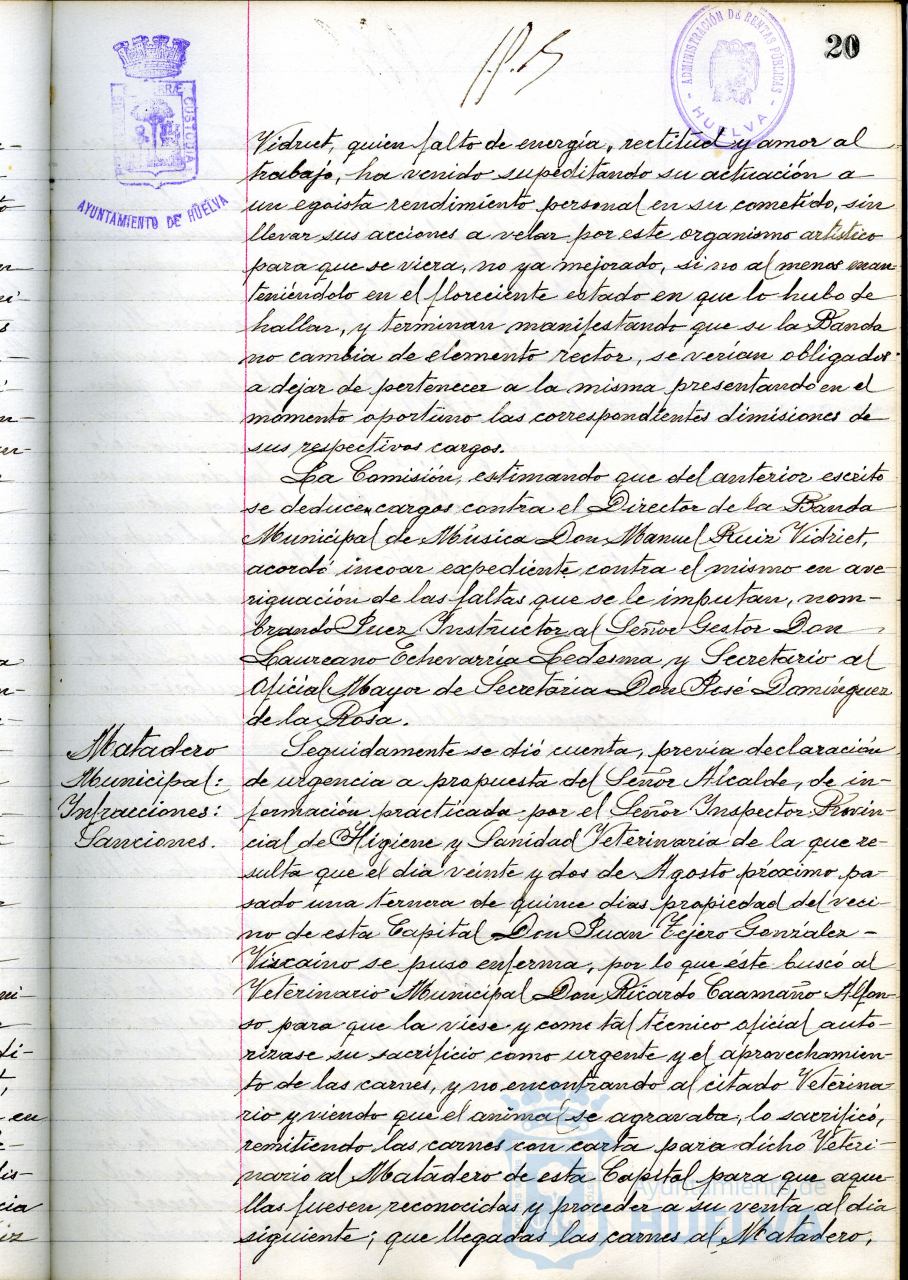 20
PORTUS MARIS ET TERRÆ CUSTODIA
AYUNTAMIENTO DE HUELVA
ADMINISTRACIÓN DE RENTAS PÚBLICAS
HUELVA
Vidriet, quien falto de energía, rectitud y amor al
trabajo, ha venido supeditando su actuación a
un egoista rendimiento personal en su cometido, sin
llevar sus acciones a velar por este organismo artístico
para que se viera, no ya mejorado, si no al menos man-
teniéndolo en el floreciente estado en que lo hubo de
hallar, y terminan manifestando que si la Banda
no cambia de elemento rector, se verían obligados
a dejar de pertenecer a la misma presentando en el
momento oportuno las correspondientes dimisiones de
sus respectivos cargos.
La Comisión, estimando que del anterior escrito
se deducen cargos contra el Director de la Banda
Municipal de Música Don Manuel Ruiz Vidriet,
acordó incoar expediente contra el mismo en ave-
riguación de las faltas que se le imputan, nom-
brando Juez Instructor al Señor Gestor Don
Laureano Echevarría Ledesma y Secretario al
Oficial Mayor de Secretaría Don José Domínguez
de la Rosa.
Matadero
Municipal:
Infracciones:
Sanciones.
Seguidamente se dió cuenta, previa declaración
de urgencia a propuesta del Señor Alcalde, de in-
formación practicada por el Señor Inspector Provin-
cial de Higiene y Sanidad Veterinaria de la que re-
sulta que el dia veinte y dos de Agosto próximo pa-
sado una ternera de quince dias propiedad del veci-
no de esta Capital Don Juan Tejero González-
Vizcaino se puso enferma, por lo que este buscó al
Veterinario Municipal Don Ricardo Caamaño Alfon-
so para que la viese y como tal técnico oficial auto-
rizase su sacrificio como urgente y el aprovechamien-
to de las carnes, y no encontrando al citado Veterina-
rio y viendo que el animal se agravaba, lo sacrificó,
remitiendo las carnes con carta para dicho Veteri-
nario al Matadero de esta Capital para que aque-
llas fuesen reconocidas y proceder a su venta al dia
siguiente; que llegadas las carnes al Matadero,
Ayuntamiento de
HUELVA